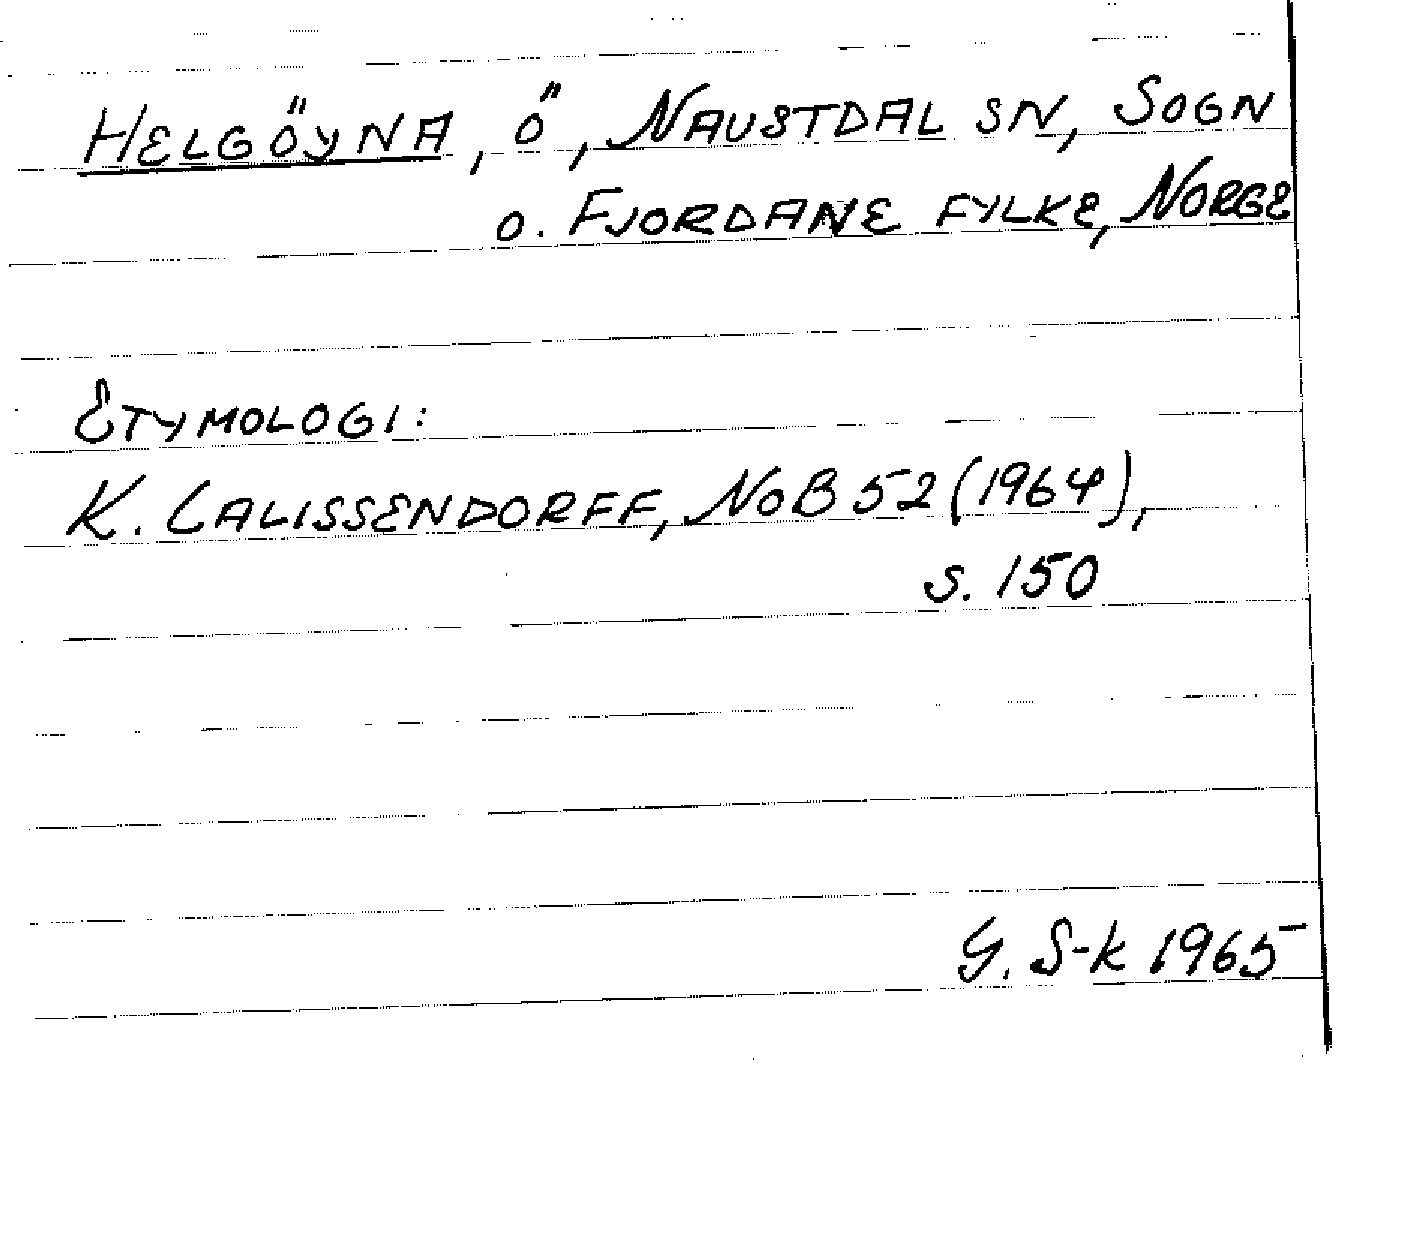 HELGÖYNA, Ö, NAUSTDAL SN, SOGN
O. FJORDANE FYLKE, NORGE
ETYMOLOGI:
K. CALISSENDORFF, NOB 52 (1964),
S. 150
G. S-K 1965